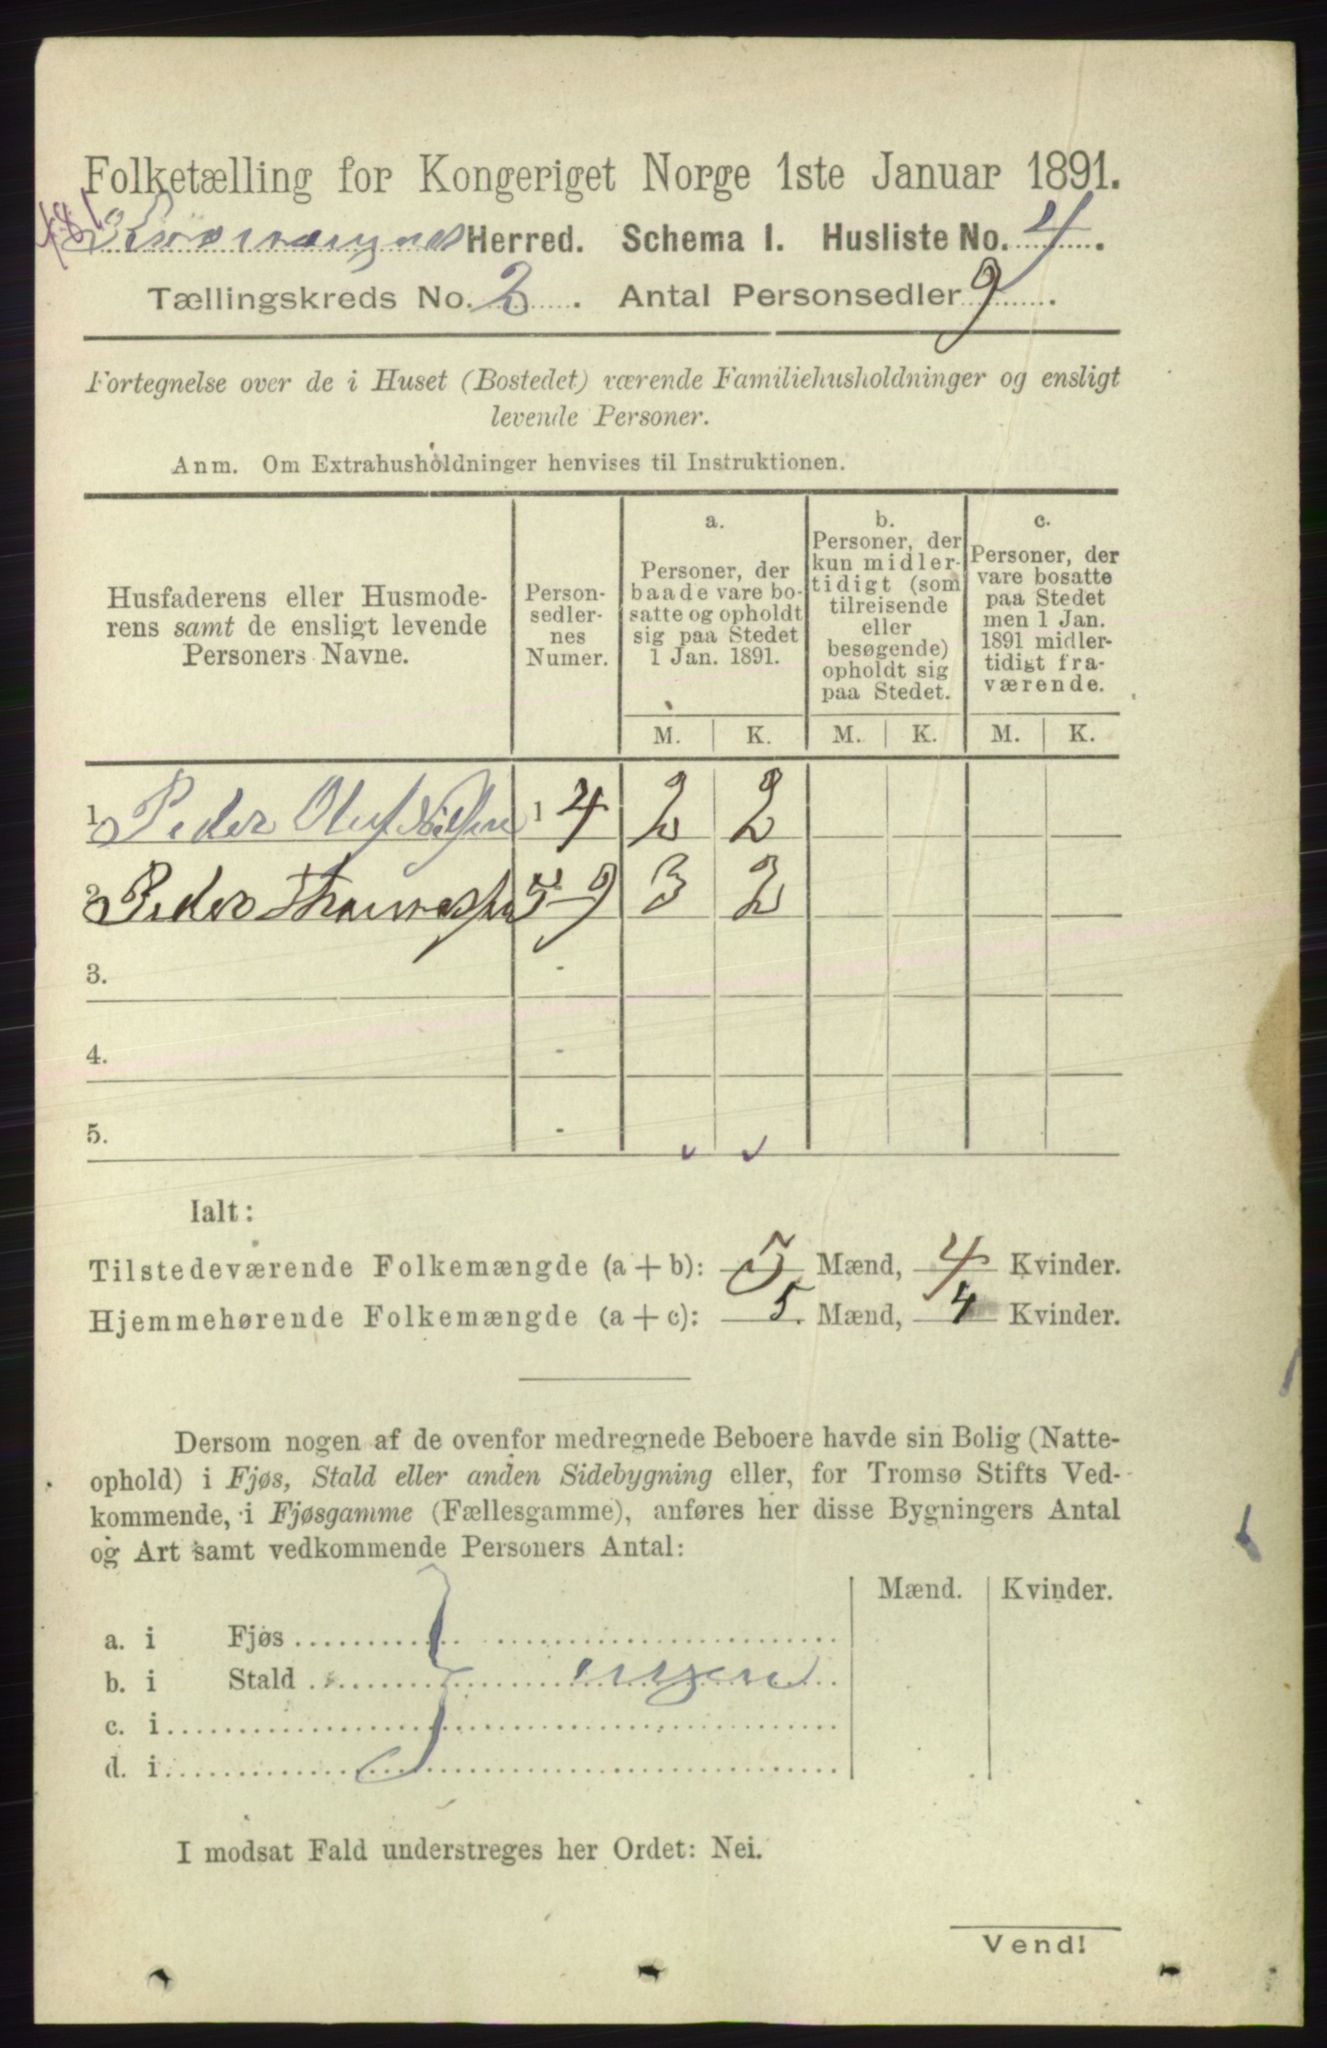 Folketælling for Kongeriget Norge 1ste Januar 1891.
Herred. Schema I. Husliste No. 4.
Tællingskreds No. 2. Antal Personsedler 9.
Fortegnelse over de i Huset (Bostedet) værende Familiehusholdninger og ensligt
levende Personer.
Anm. Om Extrahusholdninger henvises til Instruktionen.
Husfaderens eller Husmode-
rens samt de ensligt levende
Personers Navne.
Person-
sedler-
nes
Numer.
a.
Personer, der
baade vare bo-
satte og opholdt
sig paa Stedet
1 Jan. 1891.
b.
Personer, der
kun midler-
tidigt (som
tilreisende
eller
besøgende)
opholdt sig
paa Stedet.
c.
Personer, der
vare bosatte
paa Stedet
men 1 Jan.
1891 midler-
tidigt fra-
værende.
M. K. M. K. M. K.
1. Peder Oluf Nilsen 1 4 2 2
2. Peder Thomassen 5-9 3 2
3. -
4. -
5. -
Ialt:
Tilstedeværende Folkemængde (a+b): 5 Mænd, 4 Kvinder.
Hjemmehørende Folkemængde (a+c): 5 Mænd, 4 Kvinder.
Dersom nogen af de ovenfor medregnede Beboere havde sin Bolig (Natte-
ophold) i Fjøs, Stald eller anden Sidebygning eller, for Tromsø Stifts Ved-
kommende, i Fjøsgamme (Fællesgamme), anføres her disse Bygningers Antal
og Art samt vedkommende Personers Antal:
Mænd. Kvinder.
a. i Fjøs
b. i Stald ingen
c. i
d. i
I modsat Fald understreges her Ordet: Nei.
Vend!